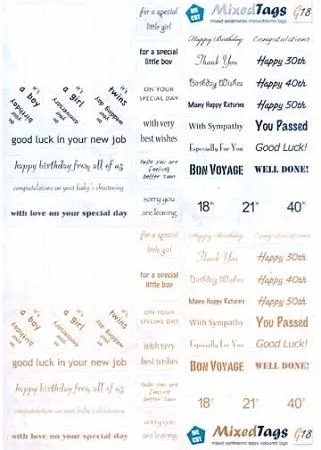 for a special
little girl
for a special
little boy
ON YOUR
SPECIAL DAY
with very
best wishes
hope you are
feeling
better soon
sorry you
are leaving
DIE CUT
MixedTags G18
mixed sentiments monochrome tags
Happy Birthday
Congratulations
Thank You
Happy 30th
Birthday Wishes
Happy 40th
Many Happy Returns
Happy 50th
With Sympathy
You Passed
Especially For You
Good Luck!
BON VOYAGE
WELL DONE!
18th
21st
40th
a boy
a girl
twins
good luck in your new job
happy birthday from all of us
congratulations on your baby's christening
with love on your special day
for a special
little girl
for a special
little boy
ON YOUR
SPECIAL DAY
with very
best wishes
hope you are
feeling
better soon
sorry you
are leaving
Happy Birthday
Congratulations
Thank You
Happy 30th
Birthday Wishes
Happy 40th
Many Happy Returns
Happy 50th
With Sympathy
You Passed
Especially For You
Good Luck!
BON VOYAGE
WELL DONE!
18th
21st
40th
a boy
a girl
twins
good luck in your new job
happy birthday from all of us
congratulations on your baby's christening
with love on your special day
DIE CUT
MixedTags G18
mixed sentiments sepia coloured tags